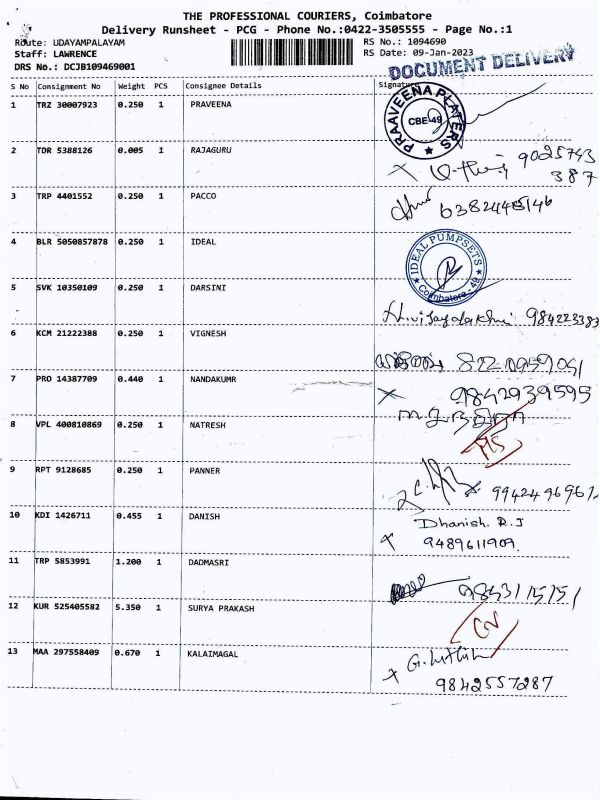 THE PROFESSIONAL COURIERS, Coimbatore
Delivery Runsheet - PCG - Phone No.:0422-3505555 - Page No.:1
Route: UDAYAMPALAYAM RS No.: 1094690
Staff: LAWRENCE RS Date: 09-Jan-2023
DRS No.: DCJB109469001 DOCUMENT DELIVERY
S No Consignment No Weight PCS Consignee Details Signature
1 TRZ 30007923 0.250 1 PRAVEENA
PRAAVEENA PLATERS CBE-49
2 TDR 5388126 0.005 1 RAJAGURU
9025743
387
3 TRP 4401552 0.250 1 PACCO
4 BLR 5050857878 0.250 1 IDEAL
IDEAL PUMPSETS Coimbatore - 49
5 SVK 10350109 0.250 1 DARSINI
984223383
6 KCM 21222388 0.250 1 VIGNESH
7 PRO 14387709 0.440 1 NANDAKUMR
9842939595
8 VPL 400810869 0.250 1 NATRESH
9 RPT 9128685 0.250 1 PANNER
10 KDI 1426711 0.455 1 DANISH
Dhanish. R.J
9489611909.
11 TRP 5853991 1.200 1 DADMASRI
9843115151
12 KUR 525405582 5.350 1 SURYA PRAKASH
13 MAA 297558409 0.670 1 KALAIMAGAL
9842557287